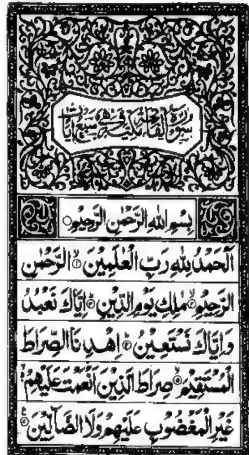 سورة الفاتحة مكية وهي سبع آيات
بِسْمِ اللّٰهِ الرَّحْمٰنِ الرَّحِيْمِ
اَلْحَمْدُ لِلّٰهِ رَبِّ الْعٰلَمِيْنَ ۙ﴿۱﴾ الرَّحْمٰنِ
الرَّحِيْمِ ۙ﴿۲﴾ مٰلِكِ يَوْمِ الدِّيْنِ ؕ﴿۳﴾ اِيَّاكَ نَعْبُدُ
وَ اِيَّاكَ نَسْتَعِيْنُ ؕ﴿۴﴾ اِهْدِنَا الصِّرَاطَ
الْمُسْتَقِيْمَ ۙ﴿۵﴾ صِرَاطَ الَّذِيْنَ اَنْعَمْتَ عَلَيْهِمْ ۙ﴿۶﴾
غَيْرِ الْمَغْضُوْبِ عَلَيْهِمْ وَلَا الضَّآلِّيْنَ ﴿۷﴾